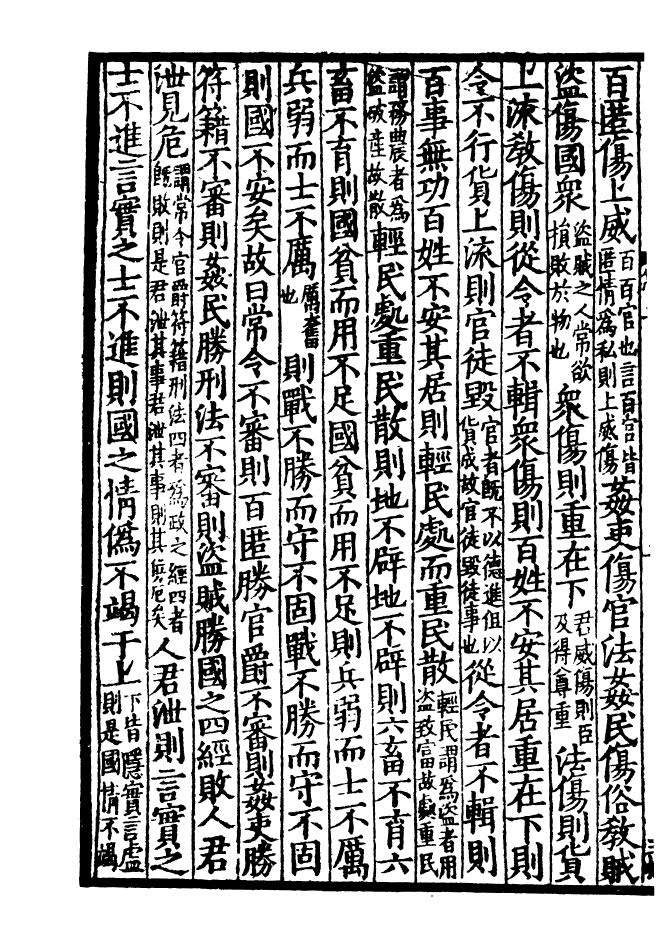 百匿傷上威百百官也言百官皆匿情爲私則上威傷姦吏傷官法姦民傷俗敎賊
盜傷國衆盜賊之人常欲損敗於物也衆傷則重在下君威傷則臣及得尊重法傷則貨
上流敎傷則從令者不輯衆傷則百姓不安其居重在下則
令不行貨上流則官徒毀官者旣不以德進但以貨成故官徒毀徒事也從令者不輯則
百事無功百姓不安其居則輕民處而重民散輕民謂爲盜者用盜致富故處重民
謂務農者爲盜破產故散輕民處重民散則地不辟地不辟則六畜不育六
畜不育則國貧而用不足國貧而用不足則兵弱而士不厲
兵弱而士不厲厲奮也則戰不勝而守不固戰不勝而守不固
則國不安矣故曰常令不審則百匿勝官爵不審則姦吏勝
符籍不審則姦民勝刑法不審則盜賊勝國之四經敗人君
泄見危謂常令官爵符籍刑法四者爲政之經四者旣敗則是君泄其事君泄其事則其危矣人君泄則言實之
士不進言實之士不進則國之情僞不竭于上下皆隱實言虛則是國情不竭